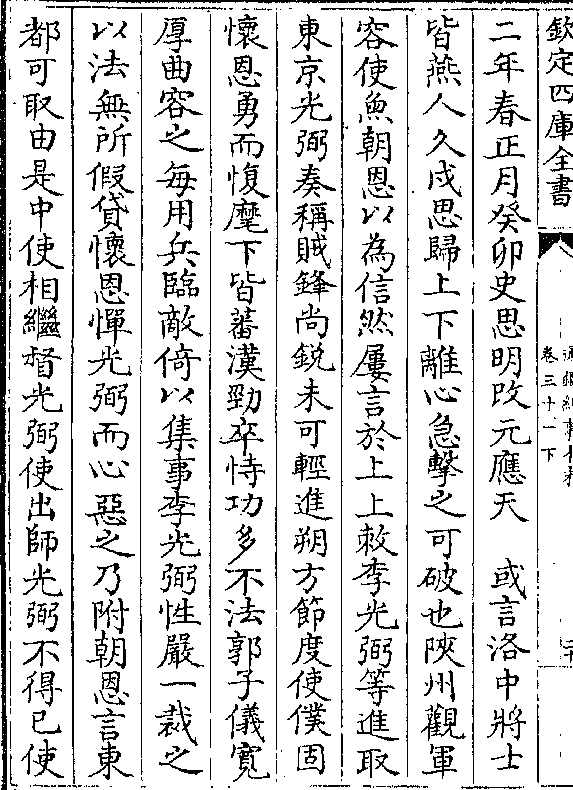 欽定四庫全書
卷三十一下
二年春正月癸卯史思明改元應天　或言洛中將士
皆燕人久戍思歸上下離心急擊之可破也陝州觀軍
容使魚朝恩以為信然屢言於上上敕李光弼等進取
東京光弼奏稱賊鋒尚銳未可輕進朔方節度使僕固
懷恩勇而愎麾下皆蕃漢勁卒恃功多不法郭子儀寛
厚曲容之每用兵臨敵倚以集事李光弼性嚴一裁之
以法無所假貸懷恩憚光弼而心惡之乃附朝恩言東
都可取由是中使相繼督光弼使出師光弼不得已使